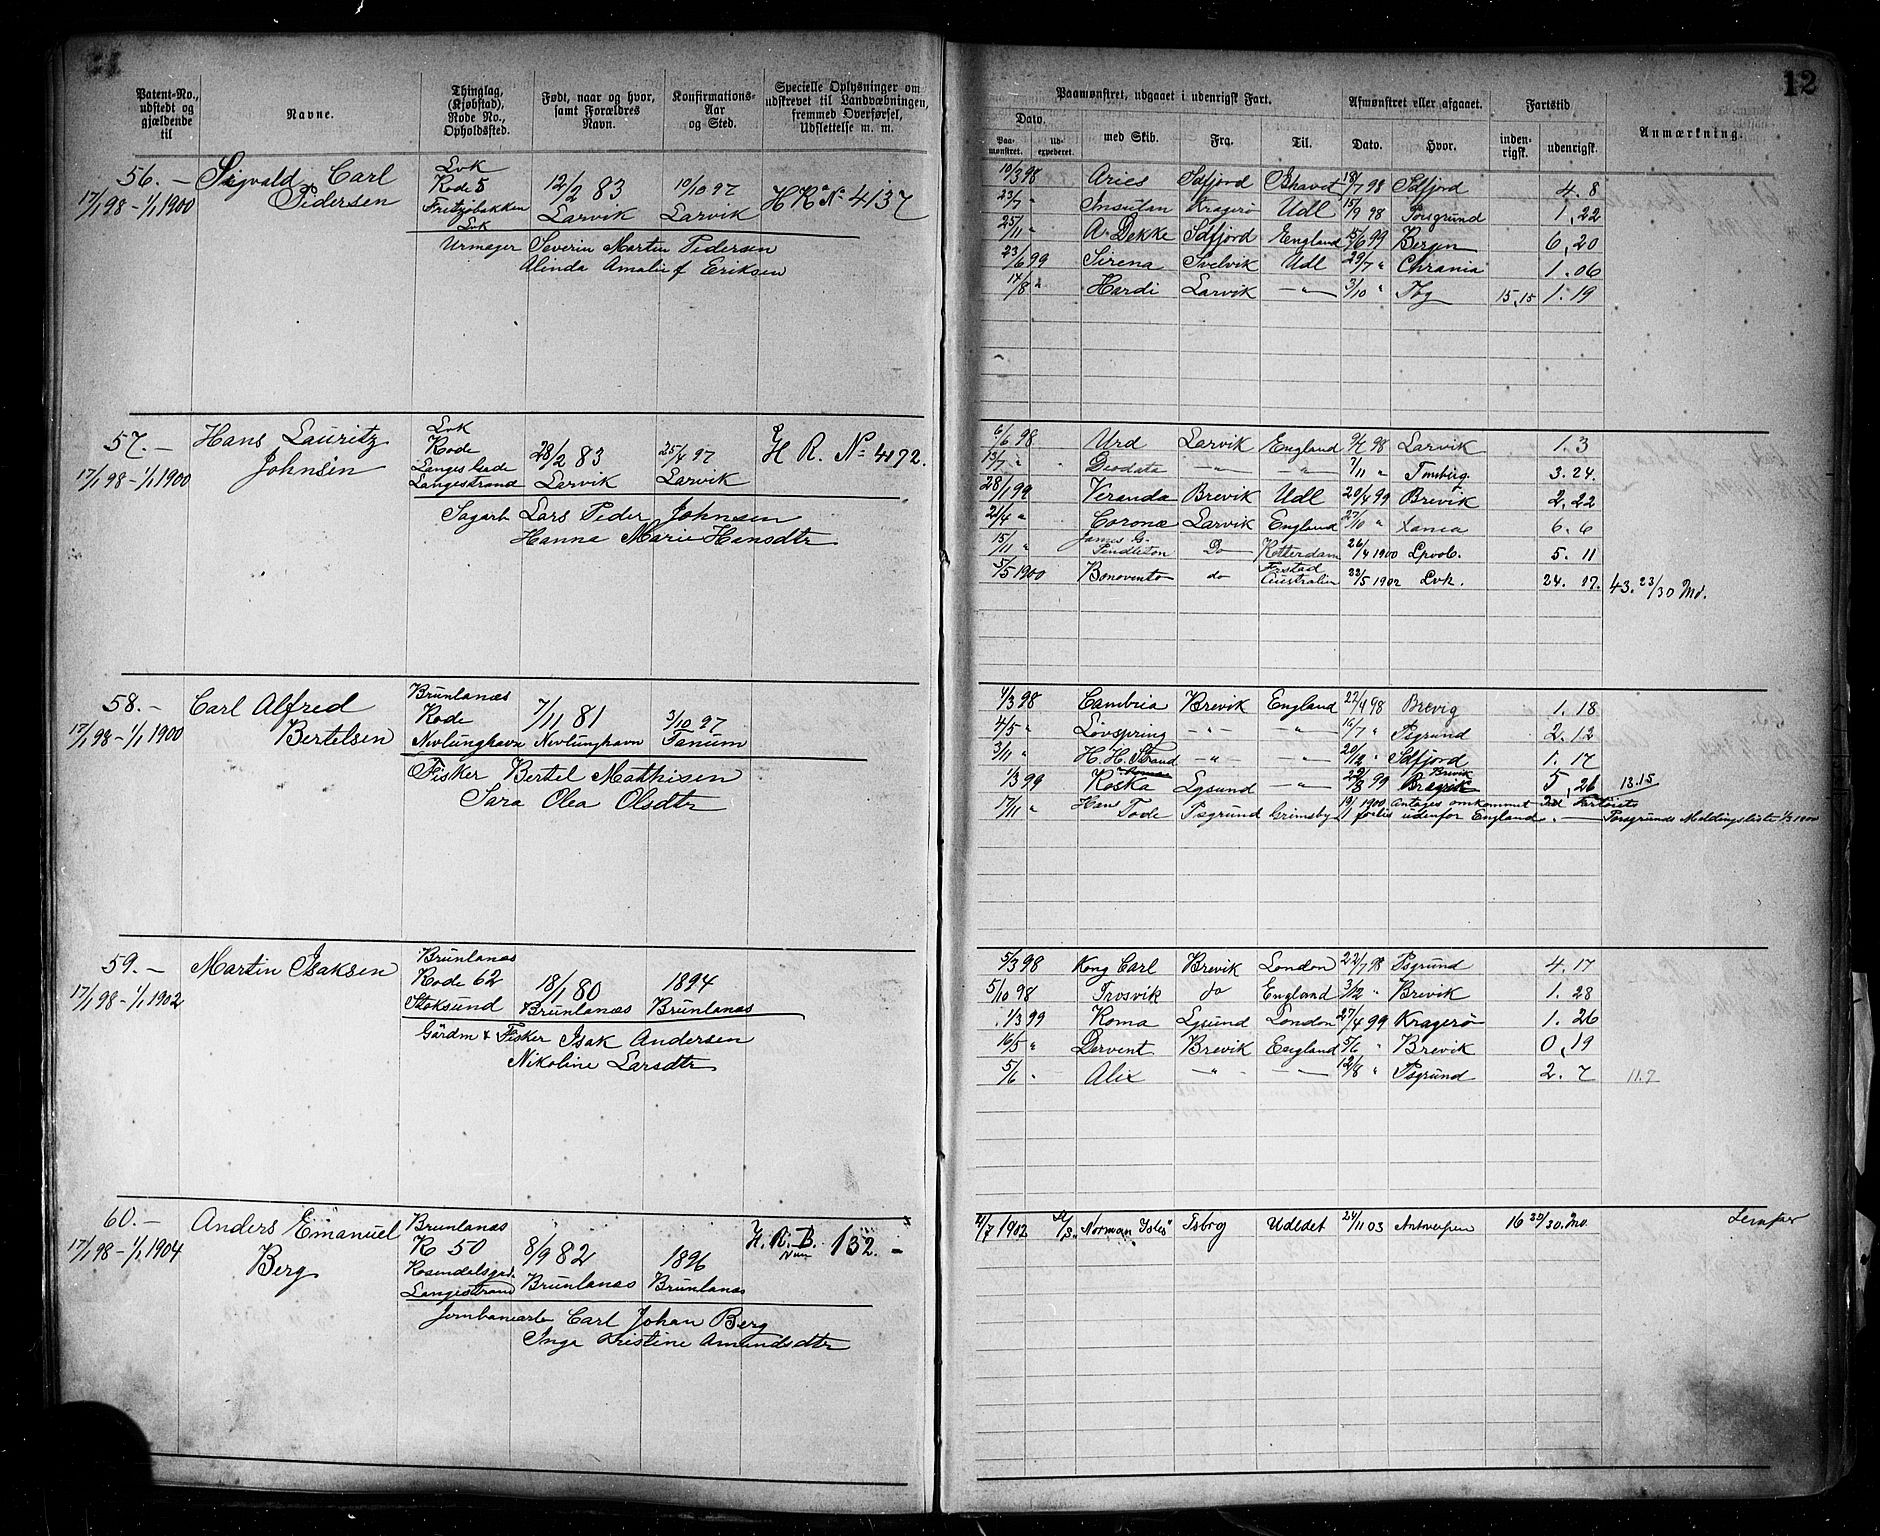 12
Patent-No., udstedt og gjældende til
Navne.
Thinglag, (Kjøbstad), Rode No., Opholdsted.
Født, naar og hvor, samt Forældres Navn.
Konfirmations-Aar og Sted.
Specielle Oplysninger om udskrevet til Landvæbningen, fremmed Overførsel, Udslettelse m. m.
Paamønstret, udgaaet i udenrigsk Fart.
Afmønstret eller afgaaet.
Fartstid
Anmærkning.
Dato.
Paa-mønstret.
Ud-expederet.
med Skib.
Fra.
Til.
Dato.
Hvor.
inden-rigsk.
udenrigsk.
56.— Sigvald Carl Pedersen
17/1 98 – 1/1 1900
Lvk Rode 5 Fritzøbakken Lvk
12/2 83 Larvik
10/10 97 Larvik
H R a No 4137
Urmager Severin Martin Pedersen
Alinda Amalie f Eriksen
10/3 98 Aries Sdfjord 18/7 98 Sdfjord 4. 8
23/7 " Kragerø Udl 15/9 98 Porsgrund 1, 22
25/11 " A. Dekke Sdfjord England 15/6 99 Bergen 6, 20
23/6 99 Sirena Svelvik Udl 29/7 " Chrania 1. 06
14/8 " Hardi Larvik —"— 3/10 " Tbg 15,15 1. 19
57.— Hans Lauritz Johnsen
17/1 98 – 1/1 1900
Lvk Rode Langestrand
28/2 83 Larvik
25/4 97 Larvik
H R. No 4172.
Sagarb Lars Peder Johnsen
Hanna Marie Hansdtr
6/6 98 Urd Larvik England 9/7 98 Larvik 1. 3
13/7 " Deodata —"— —"— 7/11 " Tønsberg. 3. 24.
28/1 99 Veranda Brevik Udl 20/4 99 Brevik 2. 22
21/4 " Corona Larvik England 27/10 " Xania 6. 6
15/11 " James G. Pendleton Do Rotterdam 26/4 1900 Lpool. 5. 11
5/5 1900 Bonovento do Frstad Australien 22/5 1902 Lvk. 24. 17. 43. 23/30 Md.
58.— Carl Alfred Bertelsen
17/1 98 – 1/1 1900
Brunlanæs Rode Nevlunghavn
7/11 81 Nevlunghavn
3/10 97 Tanum
Fisker Bertel Mathisen
Sara Olea Olsdtr
4/3 98 Cambria Brevik England 22/4 98 Brevig 1. 18
4/5 " Løvspring —"— —"— 16/7 " Psgrund 2. 12
3/11 " H. H. Strand —"— —"— 20/12 " Sdfjord 1. 17
1/3 99 Roska Lysund —"— 29/8 99 Brevik 5, 26 13.15
17/11 " Hans Tode Psgrund Grimsby 19/1 1900 Antages omkommet ved Fartøiets
forlis udenfor England. — Porsgrunds Meldingsliste 1/3 1900
59.— Martin Isaksen
17/1 98 – 1/1 1902
Brunlanæs Rode 62 Stoksund
18/1 80 Brunlanæs
1894 Brunlanæs
Gårdm & Fisker Isak Andersen
Nikoline Larsdtr
5/3 98 Kong Carl Brevik London 22/7 98 Psgrund 4. 17
5/10 98 Trosvik do England 3/12 " Brevik 1. 28
1/3 99 Roma Lysund London 27/4 99 Kragerø 1. 26
16/5 " Dervent Brevik England 5/6 " Brevik 0, 19
5/6 " Alix —"— —"— 12/8 " Psgrund 2. 7 11.7
60.— Anders Emanuel Berg
17/1 98 – 1/1 1904
Brunlanæs R 50 Rosendalsgd. Langestrand
8/9 82 Brunlanæs
1896 Brunlanæs
H. R. B. Num 132.—
Jernbanearb Carl Johan Berg
Inga Kristine Amundsdtr
4/7 1902 Norman Isles" Tsbrg Udldet 24/11 03 Antwerpen 16 23/30. Mo.